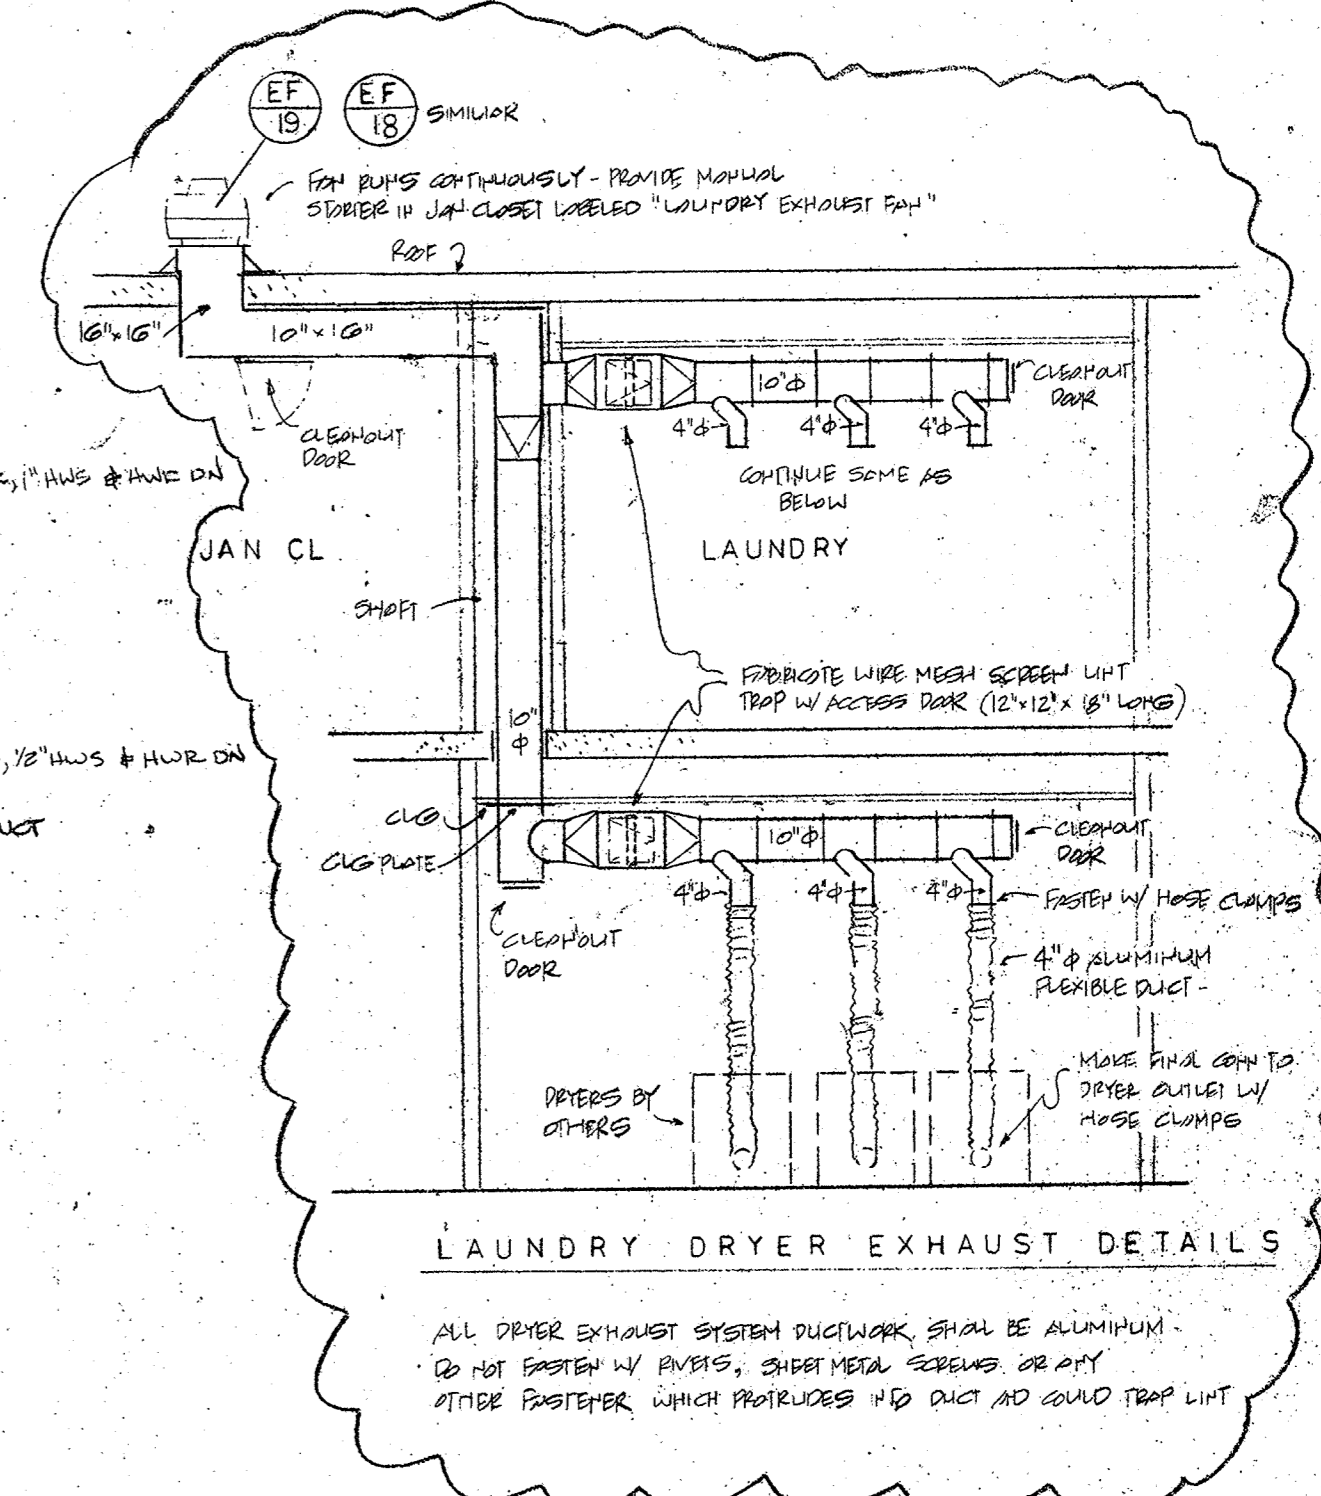 EF
19
EF
18
SIMILIAR
FAN RUNS CONTINUOUSLY - PROVIDE MANUAL
STARTER IN JAN. CLOSET LABELED "LAUNDRY EXHAUST FAN"
ROOF
16"x16"
10"x16"
10"φ
CLEANOUT
DOOR
4"φ
4"φ
4"φ
CLEANOUT
DOOR
CONTINUE SAME AS
BELOW
1" HWS & HWR DN
JAN CL
LAUNDRY
SHAFT
FABRICATE WIRE MESH SCREEN LINT
TRAP W/ ACCESS DOOR (12"x12"x 18" LONG)
10"
φ
, 1/2" HWS & HWR DN
CLG
CLG PLATE
10"φ
CLEANOUT
DOOR
4"φ
4"φ
4"φ
FASTEN W/ HOSE CLAMPS
CLEANOUT
DOOR
4"φ ALUMINUM
FLEXIBLE DUCT -
MAKE FINAL CONN TO
DRYER OUTLET W/
HOSE CLAMPS
DRYERS BY
OTHERS
LAUNDRY DRYER EXHAUST DETAILS
ALL DRYER EXHAUST SYSTEM DUCTWORK SHALL BE ALUMINUM -
DO NOT FASTEN W/ RIVETS, SHEET METAL SCREWS OR ANY
OTHER FASTENER WHICH PROTRUDES INTO DUCT AND COULD TRAP LINT